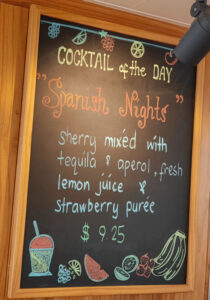 COCKTAIL of the DAY
"Spanish Nights"
sherry mixed with
tequila & aperol, fresh
lemon juice &
strawberry purée
$ 9.25